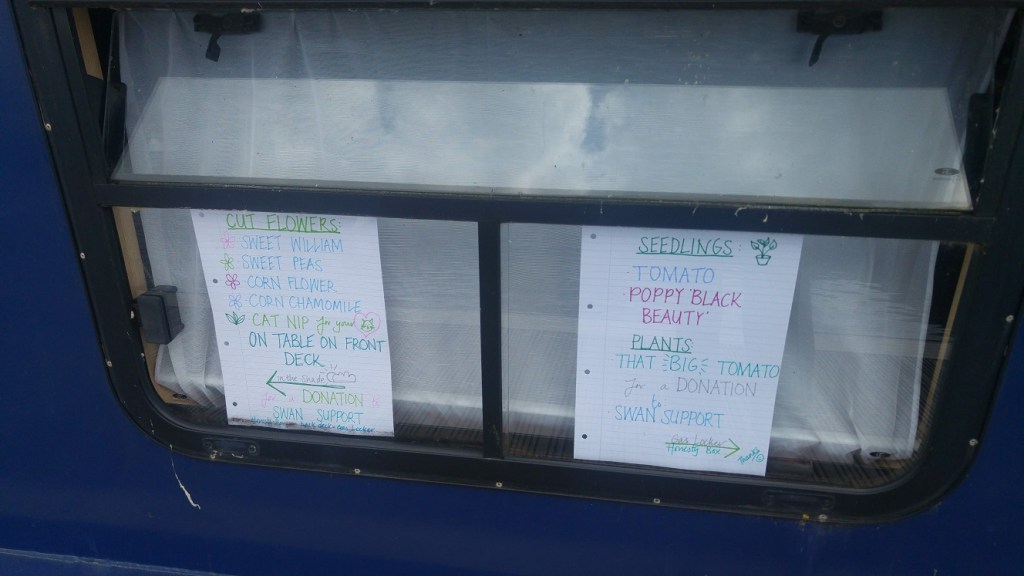 CUT FLOWERS:
SWEET WILLIAM
SWEET PEAS
CORN FLOWER
CORN CHAMOMILE
CAT NIP for your
ON TABLE ON FRONT
DECK
in the Shade
for a DONATION
SWAN SUPPORT
SEEDLINGS:
TOMATO
POPPY BLACK
BEAUTY
PLANTS
THAT BIG TOMATO
for a DONATION
to
SWAN SUPPORT
Gas Locker
Honesty Box